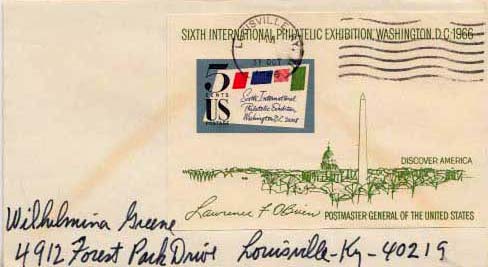 SIXTH INTERNATIONAL PHILATELIC EXHIBITION, WASHINGTON, D.C. 1966
LOUISVILLE, KY.
31 OCT
5 CENTS
US
POSTAGE
Sixth International
Philatelic Exhibition
Washington D.C. 20028
DISCOVER AMERICA
Lawrence F O'Brien POSTMASTER GENERAL OF THE UNITED STATES
Wilhelmina Greene
4912 Forest Park Drive Louisville-Ky-40219